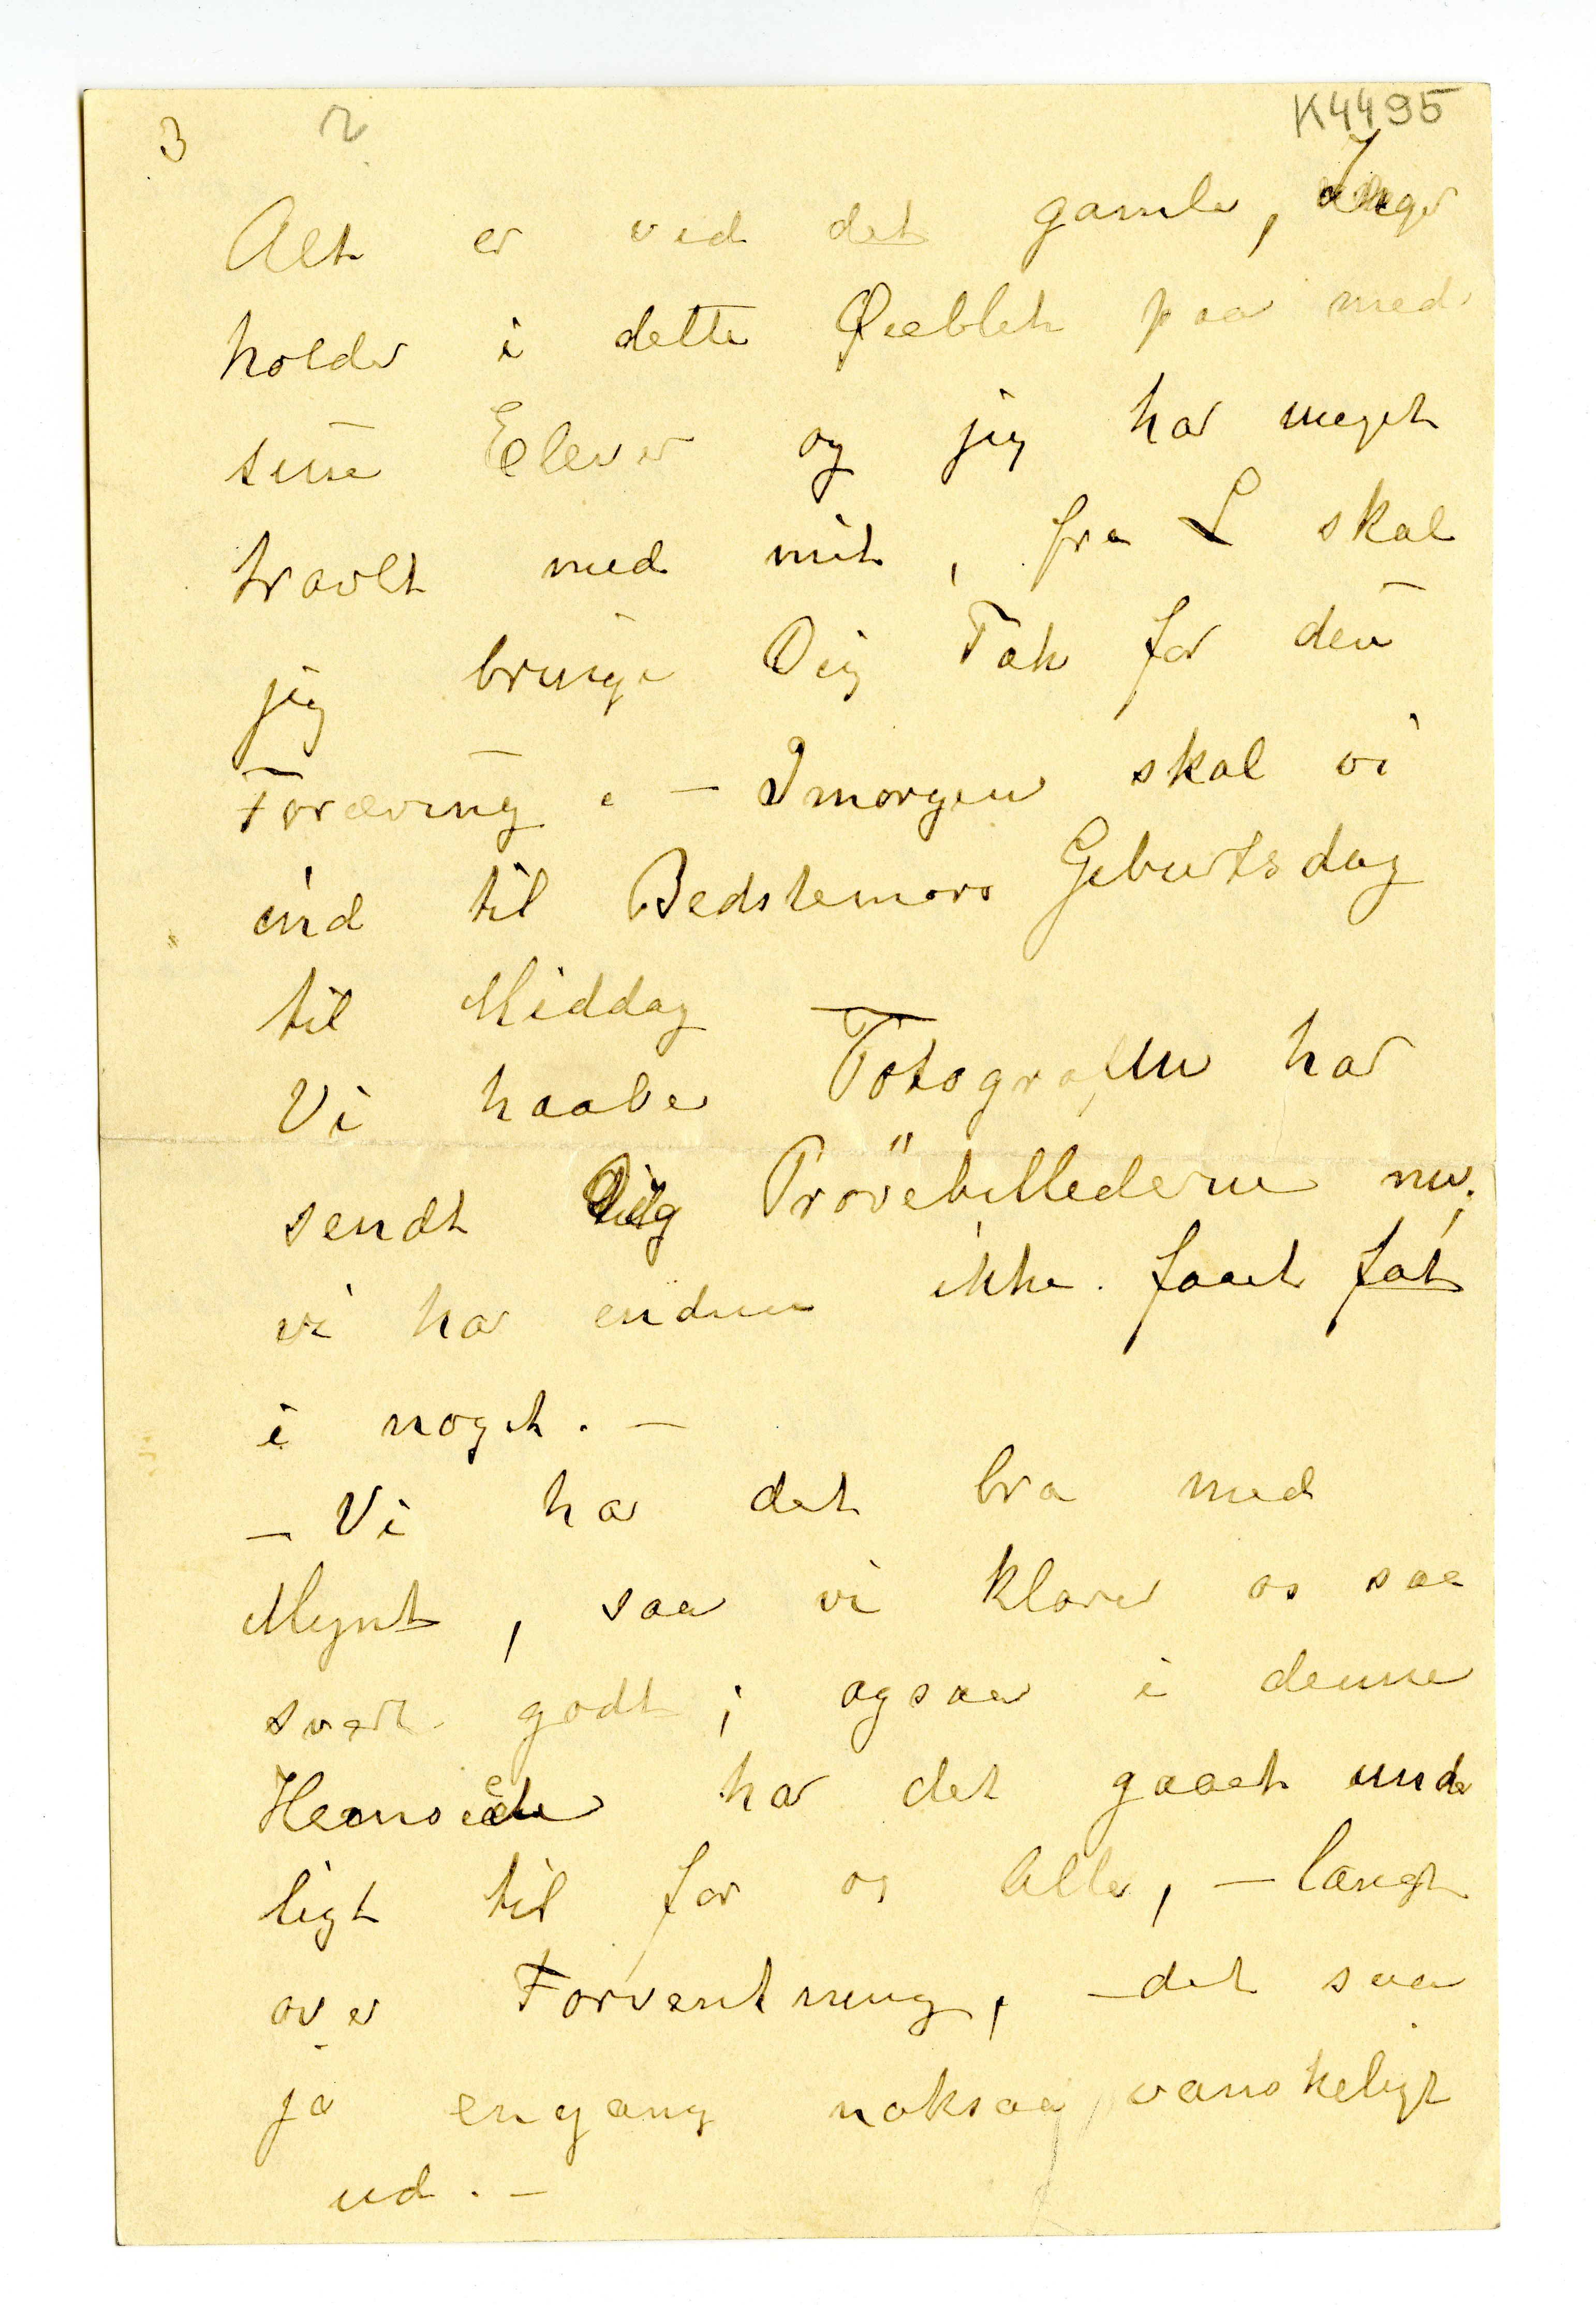 3 2 K4495
Alt er ved det gamle, Inger
holder i dette Øieblik paa med
sine Elever og jeg har meget
travlt med mit, fra L skal
jeg bringe Dig Tak for den
Foræring. – Imorgen skal vi
ind til Bedstemors Geburtsdag
til Middag
Vi haaber Fotografen har
sendt Dig Prövebillederne nu;
vi har endnu ikke faaet fat
i noget. –
– Vi har det bra med
Mynt, saa vi klarer os saa
svært godt; ogsaa i denne
Henseende har det gaaet under
ligt til for os Alle, – langt
over Forventning, – det saa
ja engang noksaa vanskeligt
ud. –